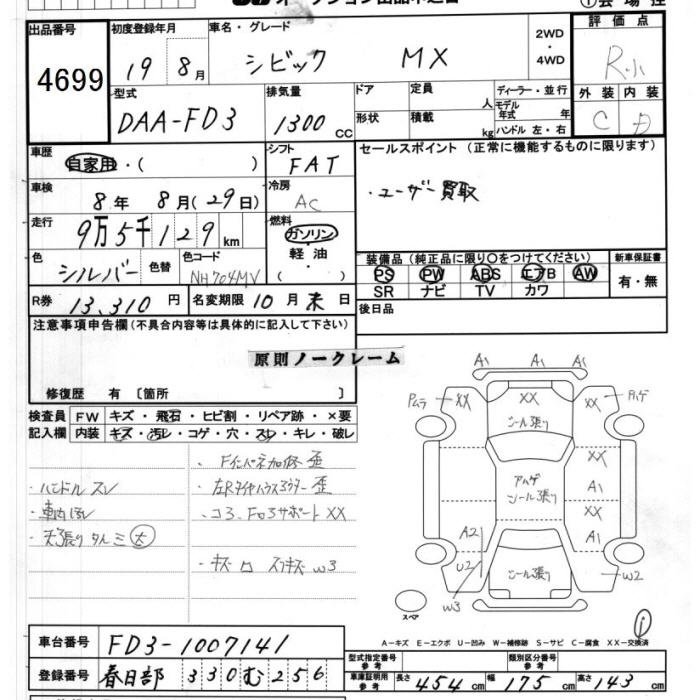 出品番号
4699
初度登録年月
19 8月
車名・グレード
シビック MX
2WD
・
4WD
評価点
R小
外装 内装
C D
型式
DAA-FD3
排気量
1300 CC
ドア
形状
定員 人
積載 kg
ディーラー・並行
モデル年式 年
ハンドル 左・右
車歴
自家用・( )
シフト
FAT
セールスポイント (正常に機能するものに限ります)
・ユーザー買取
車検
8年 8月(29日)
冷房
AC
走行
9万5千129km
燃料
ガソリン
・
軽油
・
( )
色
シルバー
色替
色コード
NH704MV
装備品(純正品に限り○をつけてください)
PS PW ABS エアB AW
SR ナビ TV カワ
新車保証書
有・無
R券 13,310円
名変期限 10月末日
後日品
注意事項申告欄(不具合内容等は具体的に記入して下さい)
原則ノークレーム
修復歴 有〔箇所 〕
検査員記入欄
FW キズ・飛石・ヒビ割・リペア跡・×要
内装 キズ・汚レ・コゲ・穴・スレ・キレ・破レ
・ハンドルスレ
・天張りタルミ大
・キズ ロ スリキズ W3
A1 A1 A1
XX XX XX
シール張り
XX
A1
XX
A1
シール張り
A2
U2
W3
シール張り
W2
スペア
A−キズ E−エクボ U−凹み W−補修跡 S−サビ C−腐食 XX−交換済
車台番号
FD3-1007141
登録番号
春日部 330 む 256
型式指定番号 参考
類別区分番号 参考
車庫証明用 参考
長さ 454cm 幅 175cm 高さ 143cm